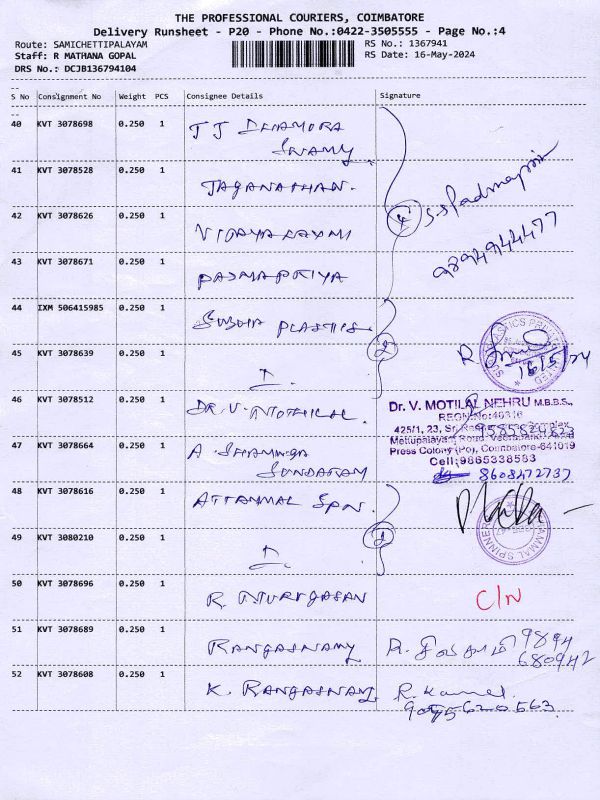 THE PROFESSIONAL COURIERS, COIMBATORE
Delivery Runsheet - P20 - Phone No.:0422-3505555 - Page No.:4
Route: SAMICHETTIPALAYAM
RS No.: 1367941
Staff: R MATHANA GOPAL
RS Date: 16-May-2024
DRS No.: DCJB136794104
S No Consignment No Weight PCS Consignee Details Signature
40 KVT 3078698 0.250 1 TJ
SWAMY
41 KVT 3078528 0.250 1 JAGANATHAN.
S.S Padmapriya
42 KVT 3078626 0.250 1 VIJAYALAXMI
4
9894944477
43 KVT 3078671 0.250 1 PADMAPRIYA
44 IXM 506415985 0.250 1 SUBHA PLASTICS.
45 KVT 3078639 0.250 1
2
16/5/24
46 KVT 3078512 0.250 1 DR. V. MOTHILAL.
Dr. V. MOTILAL NEHRU M.B.B.S.,
REGN.No:
425/1, 23,
47 KVT 3078664 0.250 1 A SHANMUGA
SUNDARAM
Mettupalayam Road
Press Colony (Po), Coimbatore-641019
Cell:9865338583
8608472737
48 KVT 3078616 0.250 1 ATTAMMAL SPN.
49 KVT 3080210 0.250 1
2
50 KVT 3078696 0.250 1 R. MURUGASAN C/N
51 KVT 3078689 0.250 1 RANGASWAMY R. 9894
680942
52 KVT 3078608 0.250 1 K. RANGASWAMY